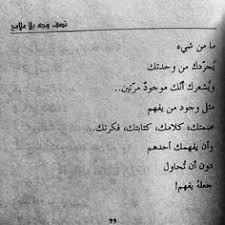 نصف وجه بلا ملامح
ما من شيء
يُجرّدك من وحدتك
ويُشعرك أنّك موجودٌ مرّتين..
مثل وجود من يفهم
صمتك، كلامك، كتابتك، فكرتك..
وأن يفهمك أحدهم
دون أن تُحاول
جعلهُ يفهم!
٩٩